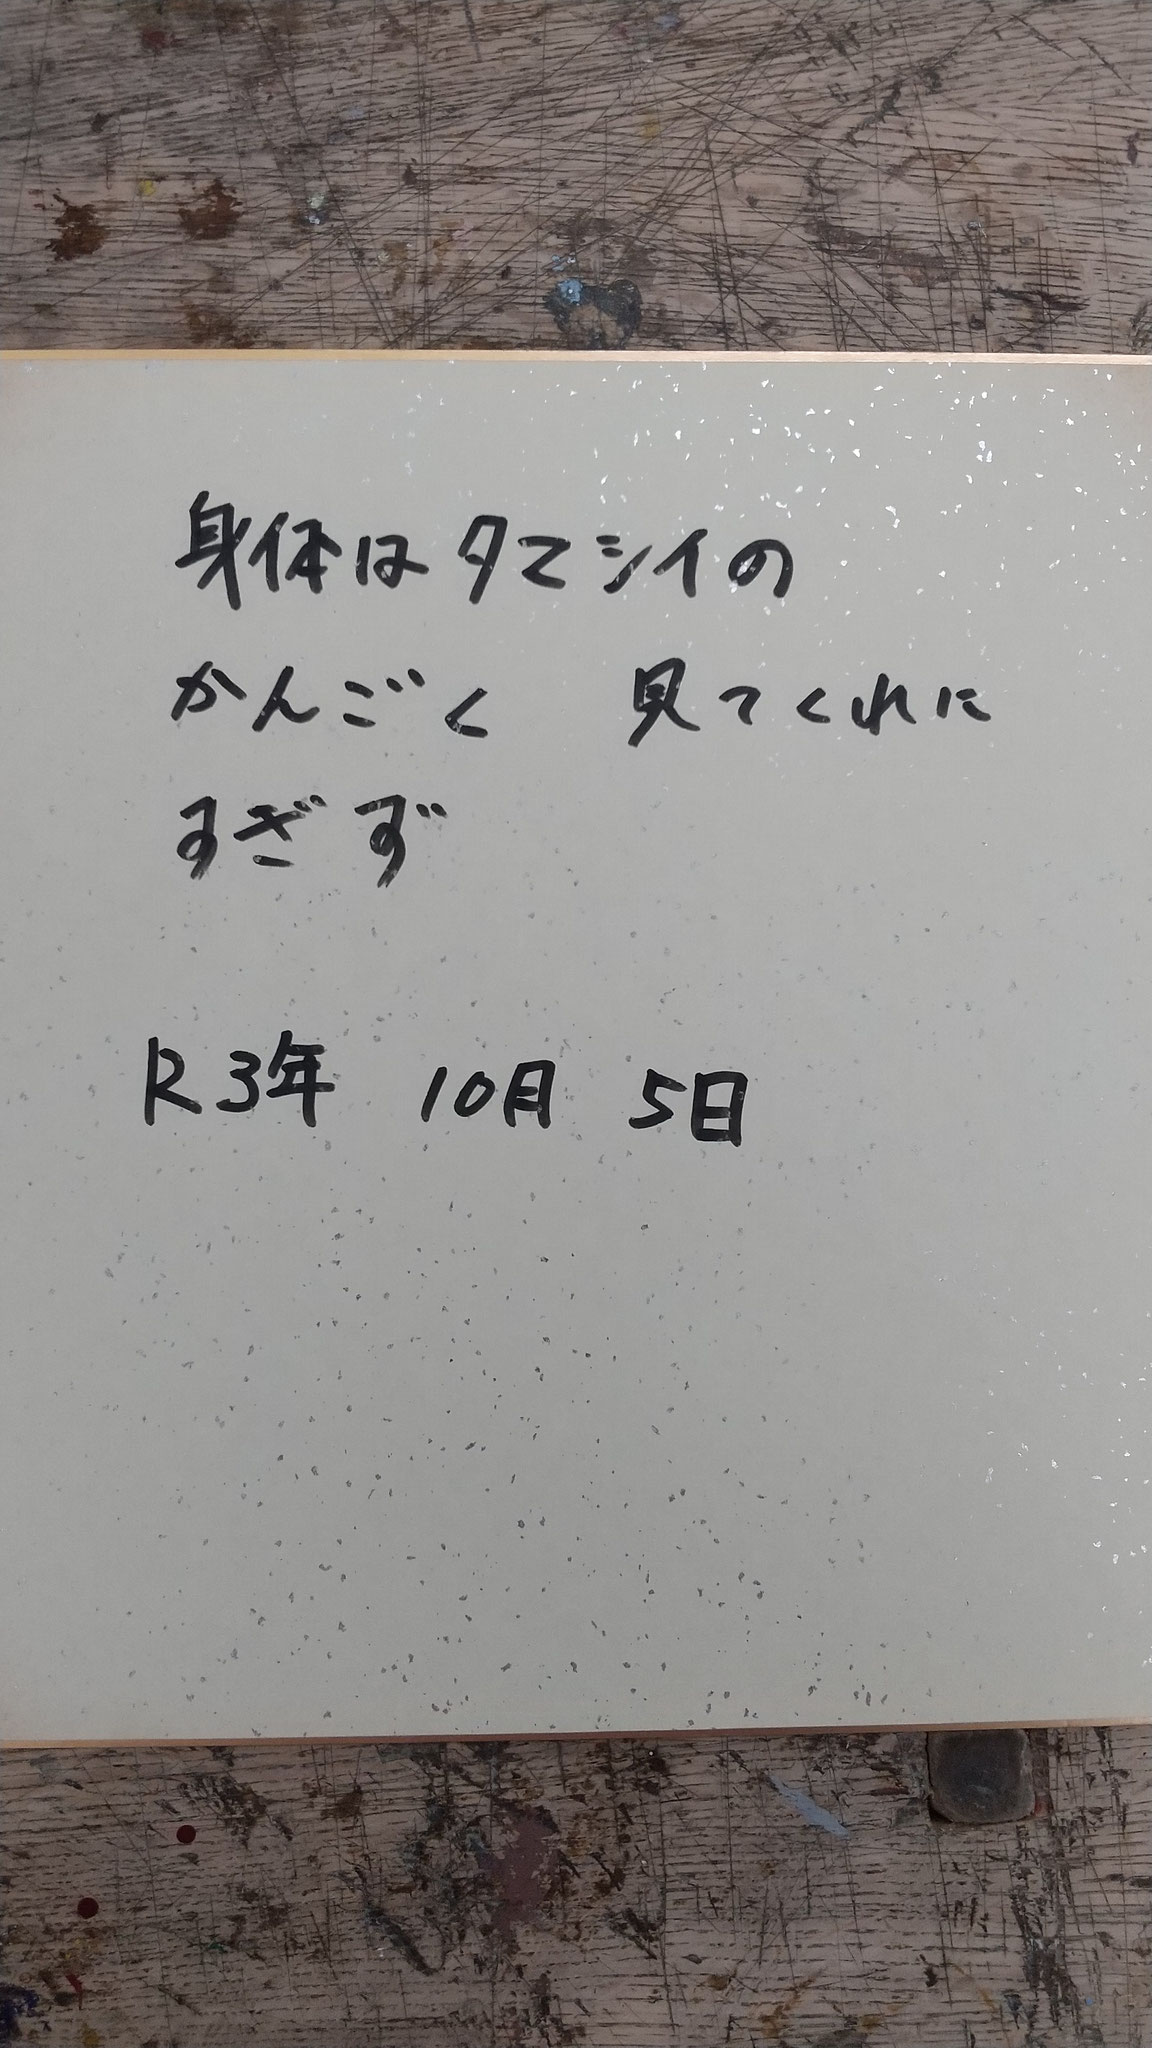 身体はタマシイの
かんごく　見てくれに
すぎず
R3年　10月　5日